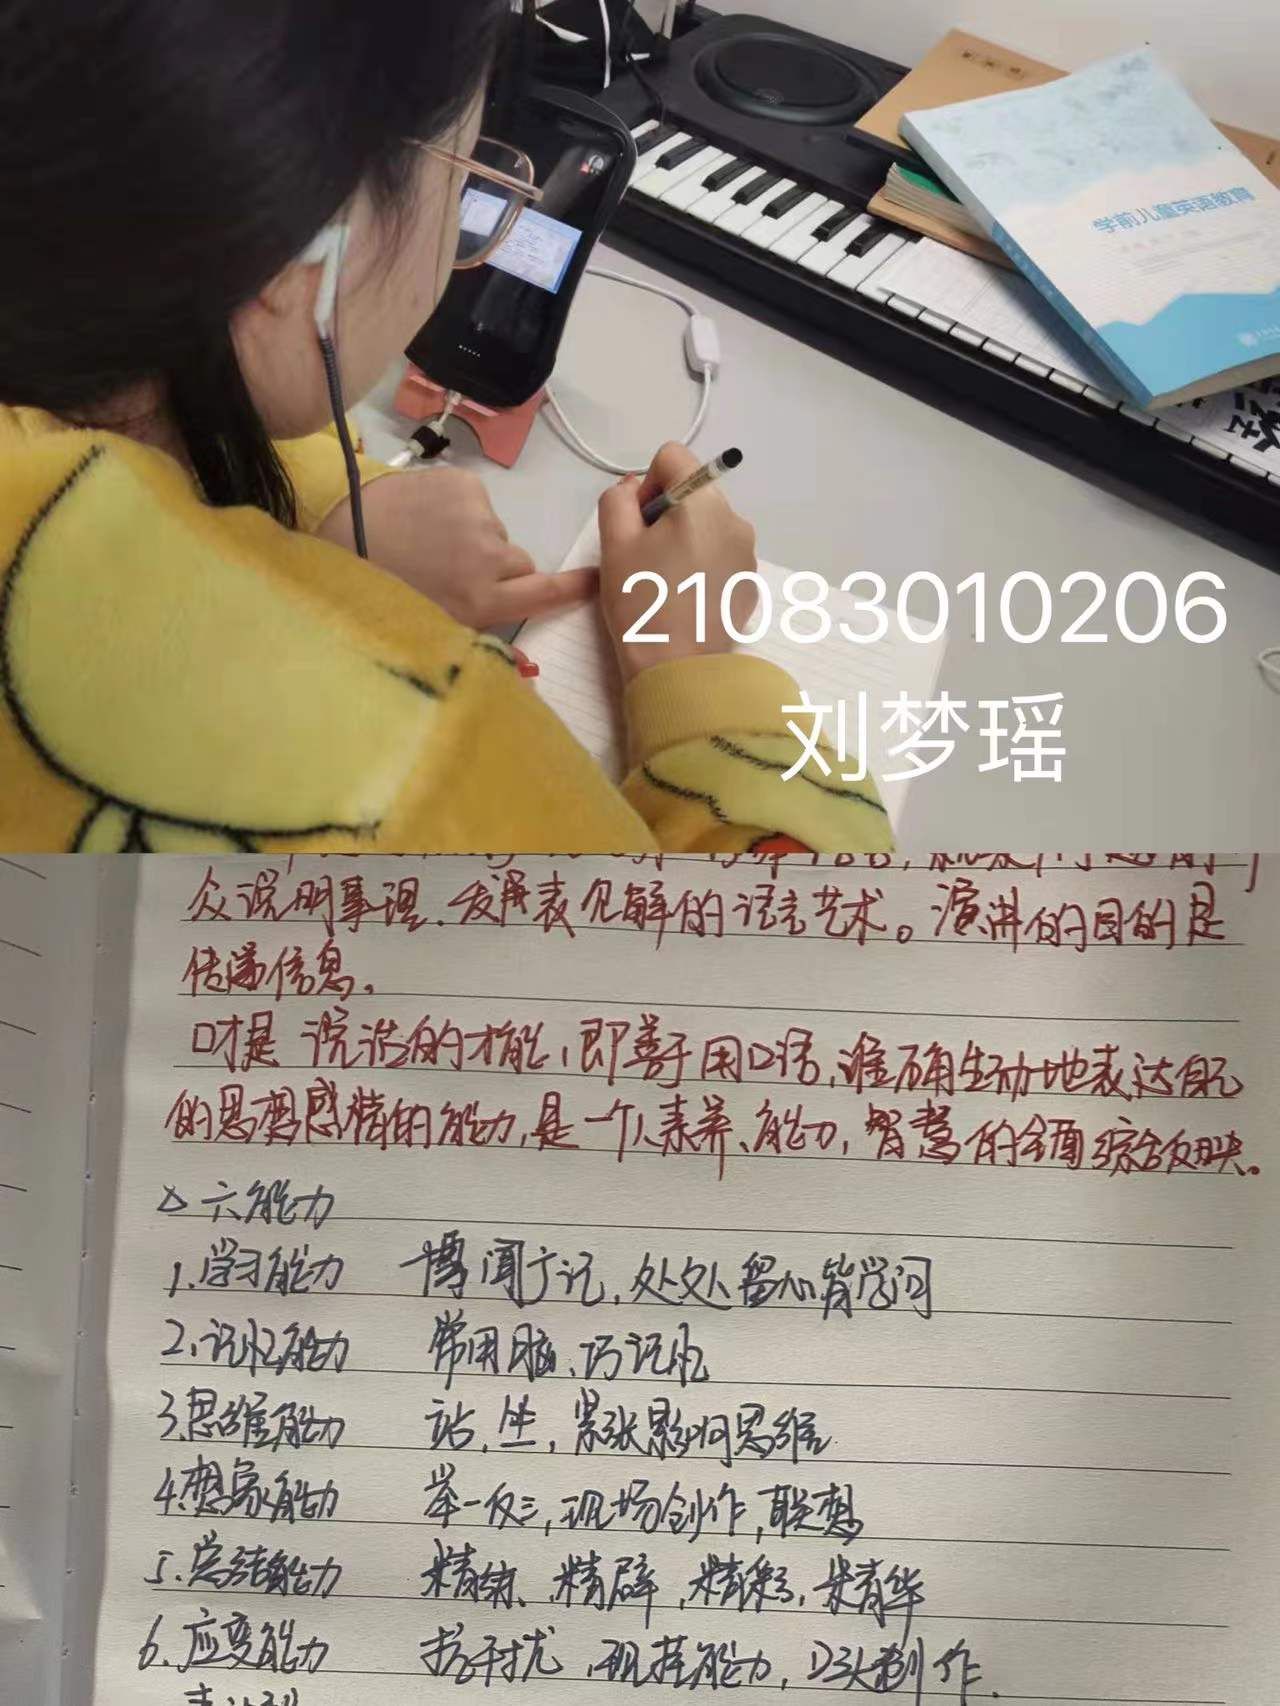 学前儿童英语教育
21083010206
刘梦瑶
众说明事理、发展表见解的语言艺术。演讲的目的是
传递信息。
口才是说话的才能,即善于用口语,准确生动地表达自己
的思想感情的能力,是一个人素养、能力,智慧的全面综合反映。
△ 六能力
1.学习能力 博闻广记,处处留心皆学问
2.记忆能力 常用脑、巧记忆
3.思维能力 站,坐,紧张影响思维
4.想象能力 举一反三,现场创作,联想
5.总结能力 精练、精辟,精彩,精华
6.应变能力 抗干扰,现挂能力,口头制作.